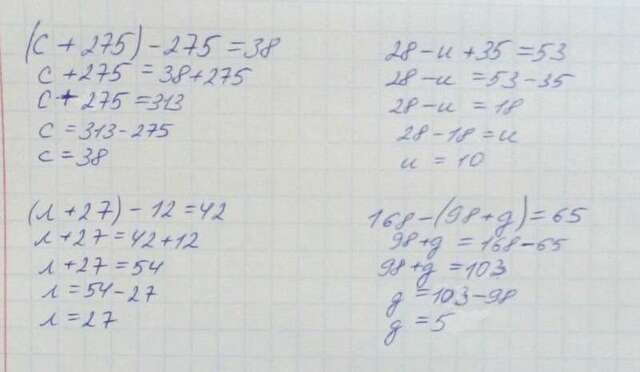 (с + 275) - 275 = 38
с + 275 = 38 + 275
с + 275 = 313
с = 313 - 275
с = 38
28 - и + 35 = 53
28 - и = 53 - 35
28 - и = 18
28 - 18 = и
и = 10
(л + 27) - 12 = 42
л + 27 = 42 + 12
л + 27 = 54
л = 54 - 27
л = 27
168 - (98 + д) = 65
98 + д = 168 - 65
98 + д = 103
д = 103 - 98
д = 5